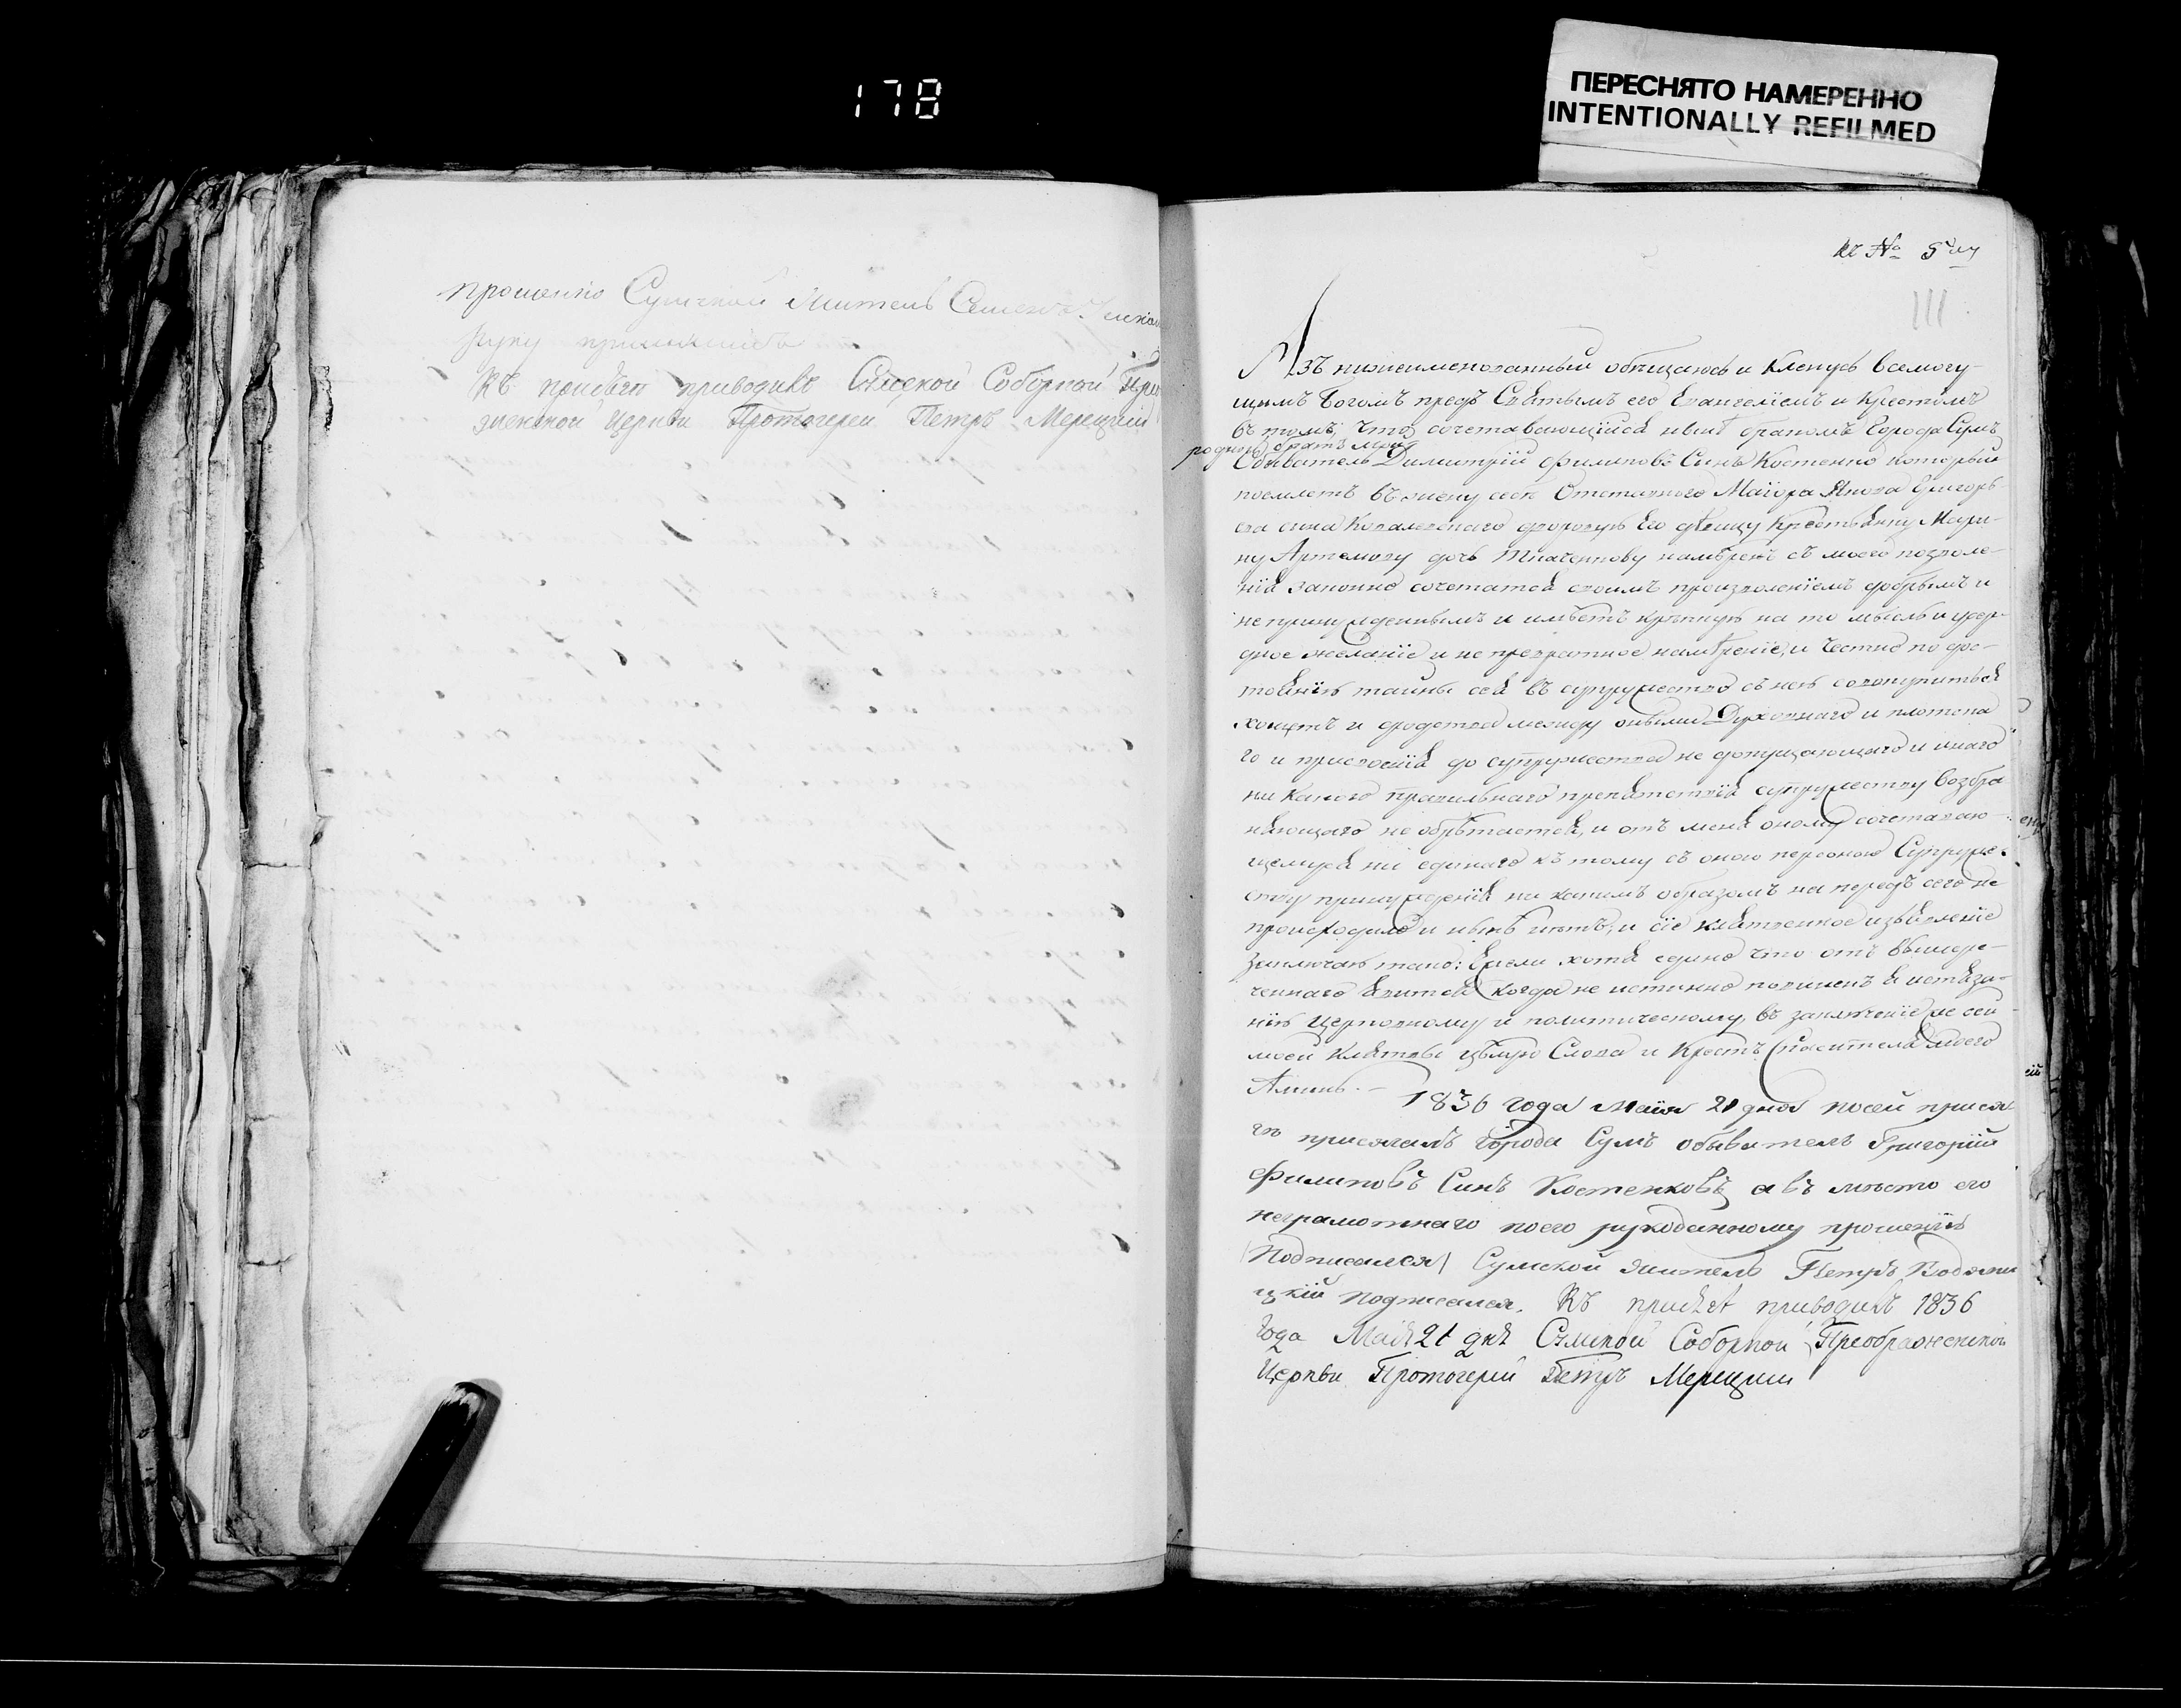 178
ПЕРЕСНЯТО НАМЕРЕННО
INTENTIONALLY REFILMED
прошенію Сумской житель Семенъ
руку приложилъ
Къ присягѣ приводилъ Сумской Соборной Прео
женской Церкви Протоіерей Петръ Мерещкій
къ № 5му
111
Азъ нижеименованный обѣщаюсь и Кленусь всемогу-
щимъ Богомъ предъ Святымъ его Евангеліемъ и Крестомъ
въ томъ, что сочетавающійся нынѣ бракомъ Города Сумъ
родной братъ мой
Обыватель Димитрій Филиповъ Синъ Костенко который
поемлетъ въ жену себѣ Отставного Маіора Якова Григорь
ева сина Ковалевскаго дворовую Его дѣвицу Крестьянку Мари-
ну Артемову дочь Ткаченкову намѣренъ съ моего позволе-
нія законно сочетатся своимъ произволеніемъ добрымъ и
непринужденнымъ и имѣетъ крѣпкую на то мысль и усер-
дное желаніе и не превратное намѣреніе, и честно по дос-
тоянію тайны сея въ супружество съ нею совокупиться
хощетъ и сродства между оными Духовнаго и плотска
го и присвоенія до супружества не допущающаго и инаго
ни какого правильнаго препятствія супружеству возбра
няющаго не обрѣтается, и отъ меня оному сочетаваю-
щемуся ни единаго къ тому съ оною персоною Супруже-
ству принужденія ни какимъ образомъ на передъ сего не
происходило и нынѣ нѣтъ, и сіе клятвенное изъявленіе
Заключаю тако: Ежели хотя едино что отъ вышере-
ченнаго явится когда не истинно повиненъ я истяза-
нію Церковному и политическому, въ заключеніе же сей
моей Клятвы цѣлую Слова и Крестъ Спасителя моего
Аминь. — 1836 года Маія 21 дня по сей прися
гѣ присягалъ Города Сумъ обыватель Григорій
Филиповъ Синъ Костенковъ а въ мѣсто его
неграмотнаго по его рукоданному прошенію
Подписался Сумской житель Петръ
цкій подписался. Къ присягѣ приводилъ 1836
Года Маія 21 дня Сумской Соборной Преображенской
Церкви Протоіерей Петръ Мерещкій